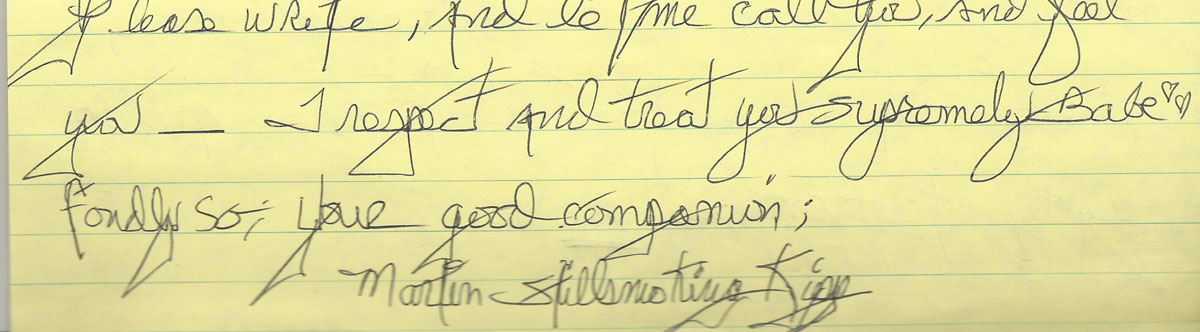 Please write, And let me call you, And feel
you — I respect And treat you supremely Babe ♡♡
fondly so; Your good companion;
Martin Kipp